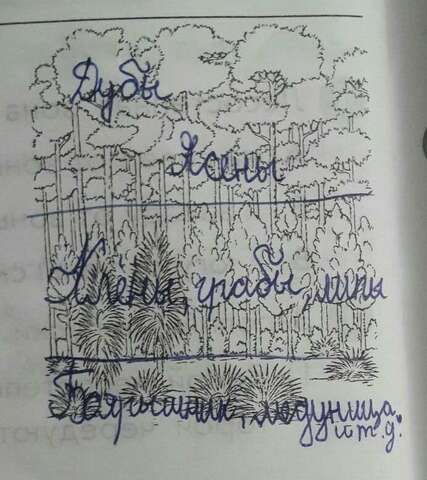 Дубы
Ясены
Клёны, грабы, липы
Боярышник, медуница
и т.д.